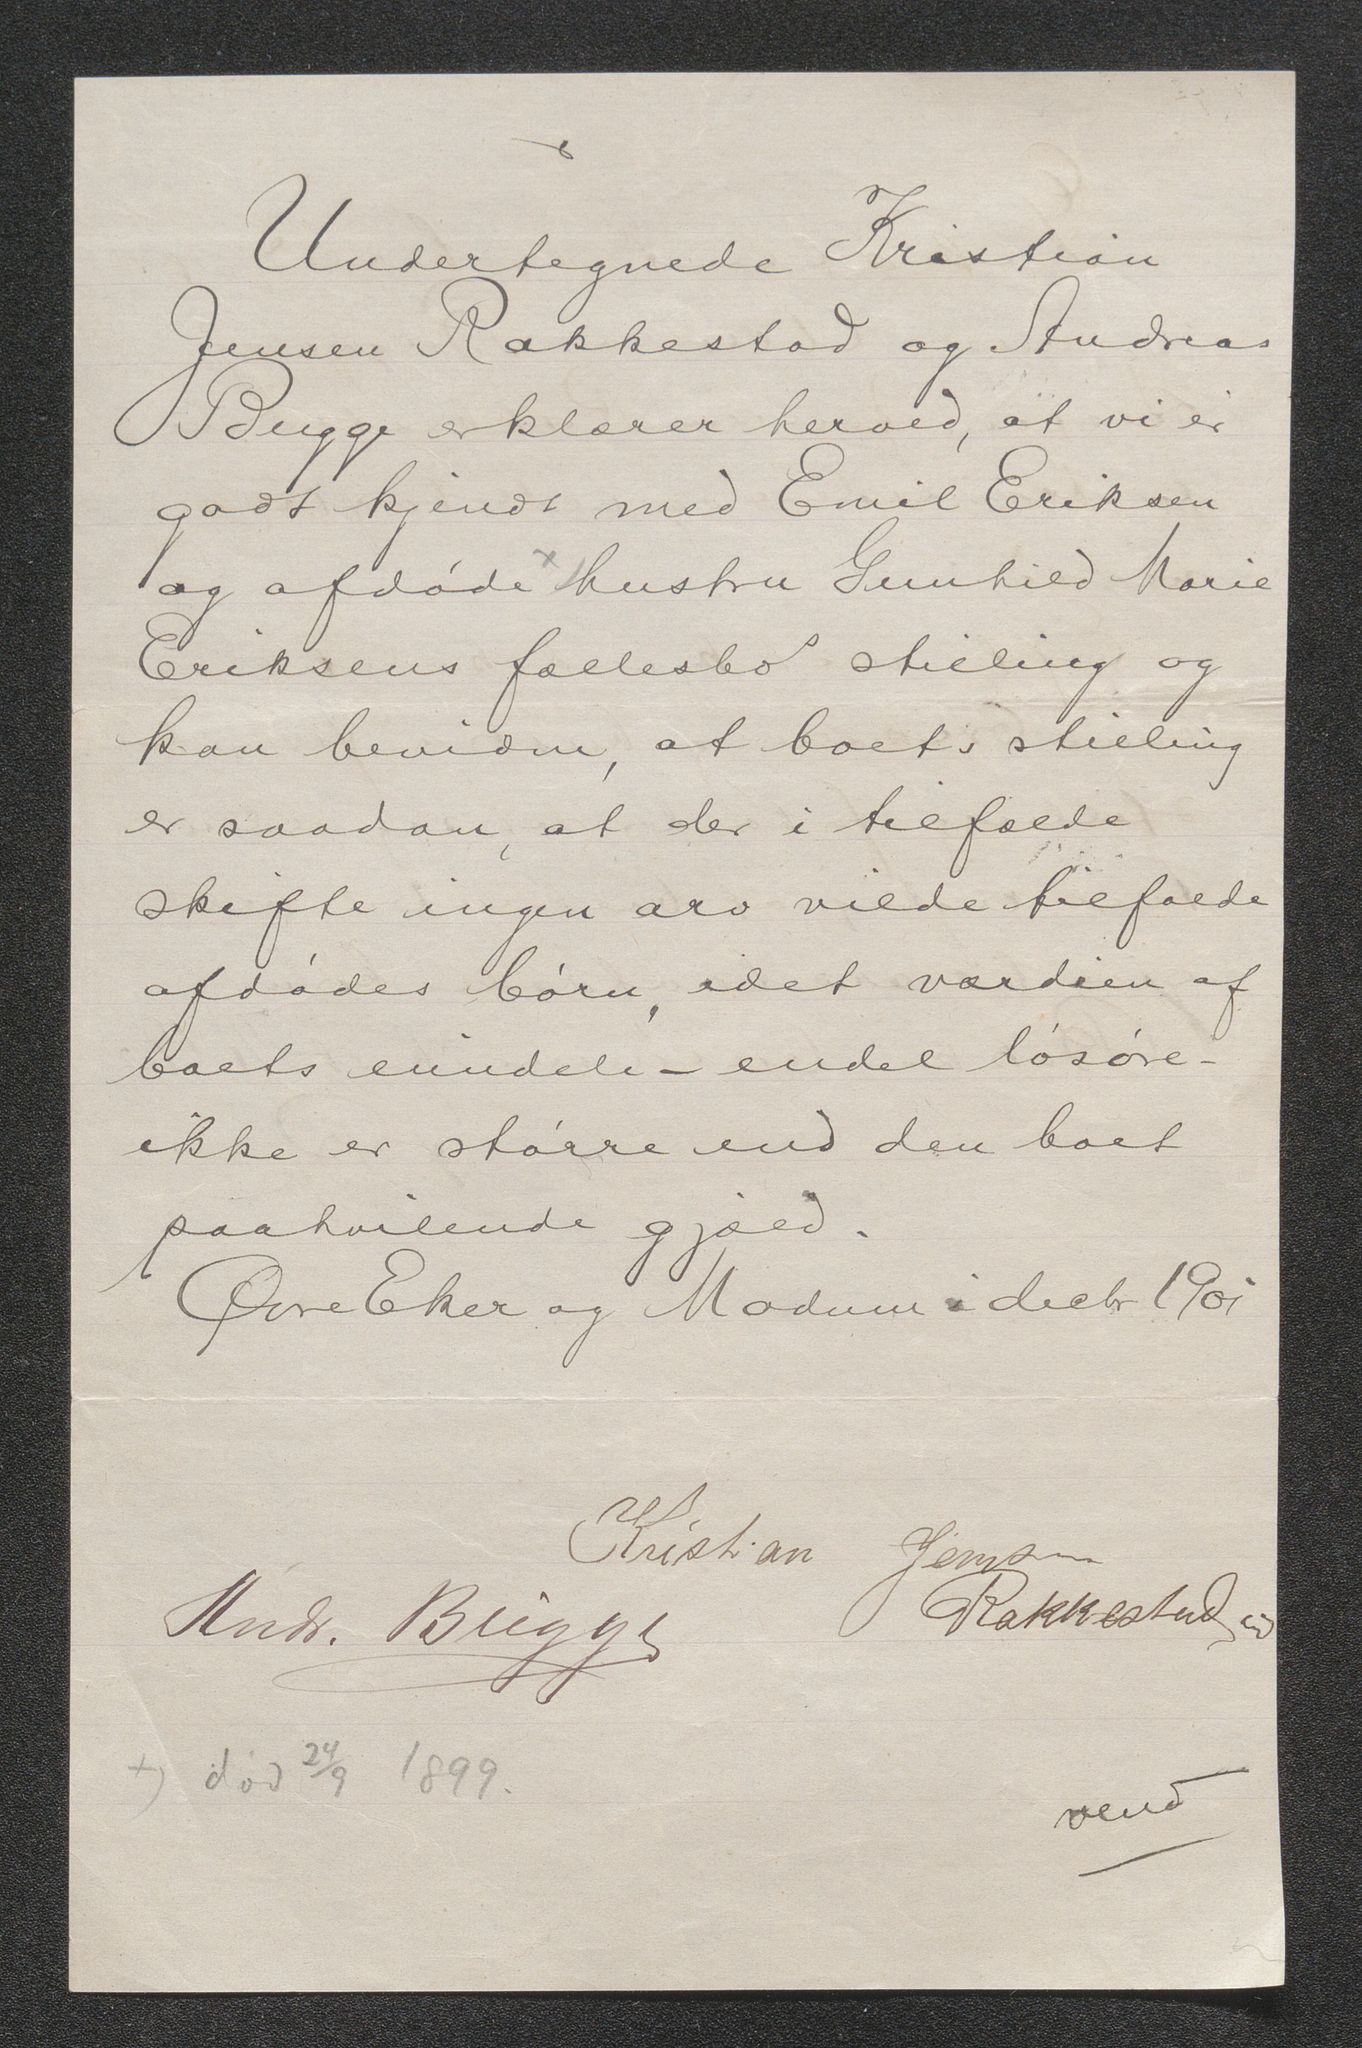 Undertegnede Kristian
Jensen Rakkestad og Andreas
Bugge erklærer herved, at vi er
godt kjendt med Emil Eriksen
og afdøde x hustru Gunhild Marie
Eriksens fællesbos stilling og
kan bevidne, at boets stilling
er saadan, at der i tilfælde
skifte ingen arv vilde tilfalde
afdødes børn, idet værdien af
boets eiendele - endel løsøre -
ikke er større end den boet
paahvilende gjæld.
Øvre Eker og Modum i decbr 1901
Kristian Jensen
Andr. Bugge Rakkestad
x) død 24/9 1899.
vend